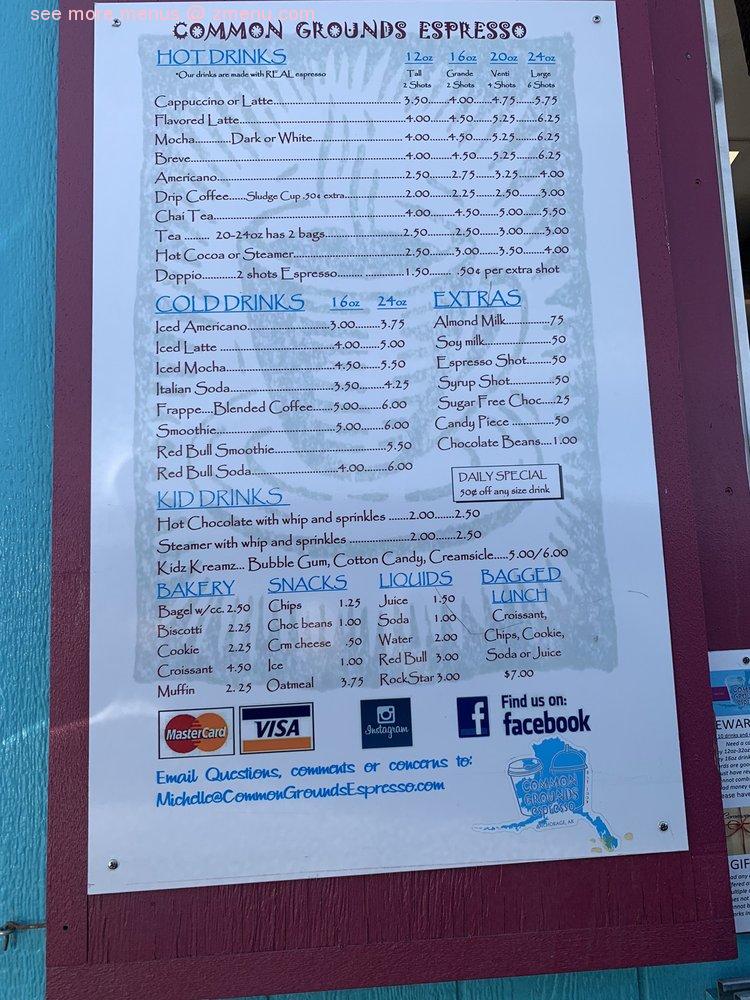 see more menus @ zmenu.com
COMMON GROUNDS ESPRESSO
HOT DRINKS 12oz 16oz 20oz 24oz
*Our drinks are made with REAL espresso Tall Grande Venti Large
2 Shots 2 Shots 4 Shots 6 Shots
Cappuccino or Latte 3.50 4.00 4.75 5.75
Flavored Latte 4.00 4.50 5.25 6.25
Mocha Dark or White 4.00 4.50 5.25 6.25
Breve 4.00 4.50 5.25 6.25
Americano 2.50 2.75 3.25 4.00
Drip Coffee Sludge Cup .50¢ extra 2.00 2.25 2.50 3.00
Chai Tea 4.00 4.50 5.00 5.50
Tea 20-24oz has 2 bags 2.50 2.50 3.00 3.00
Hot Cocoa or Steamer 2.50 3.00 3.50 4.00
Doppio 2 shots Espresso 1.50 .50¢ per extra shot
COLD DRINKS 16oz 24oz
Iced Americano 3.00 3.75
Iced Latte 4.00 5.00
Iced Mocha 4.50 5.50
Italian Soda 3.50 4.25
Frappe Blended Coffee 5.00 6.00
Smoothie 5.00 6.00
Red Bull Smoothie 5.50
Red Bull Soda 4.00 6.00
EXTRAS
Almond Milk .75
Soy milk .50
Espresso Shot .50
Syrup Shot .50
Sugar Free Choc .25
Candy Piece .50
Chocolate Beans 1.00
DAILY SPECIAL
50¢ off any size drink
KID DRINKS
Hot Chocolate with whip and sprinkles 2.00 2.50
Steamer with whip and sprinkles 2.00 2.50
Kidz Kreamz... Bubble Gum, Cotton Candy, Creamsicle 5.00/6.00
BAKERY
Bagel w/cc. 2.50
Biscotti 2.25
Cookie 2.25
Croissant 4.50
Muffin 2.25
SNACKS
Chips 1.25
Choc beans 1.00
Crm cheese .50
Ice 1.00
Oatmeal 3.75
LIQUIDS
Juice 1.50
Soda 1.00
Water 2.00
Red Bull 3.00
RockStar 3.00
BAGGED
LUNCH
Croissant,
Chips, Cookie,
Soda or Juice
$7.00
MasterCard
VISA
Instagram
Find us on:
facebook
Email Questions, comments or concerns to:
Michelle@CommonGroundsEspresso.com
COMMON
GROUNDS
espresso
ANCHORAGE, AK